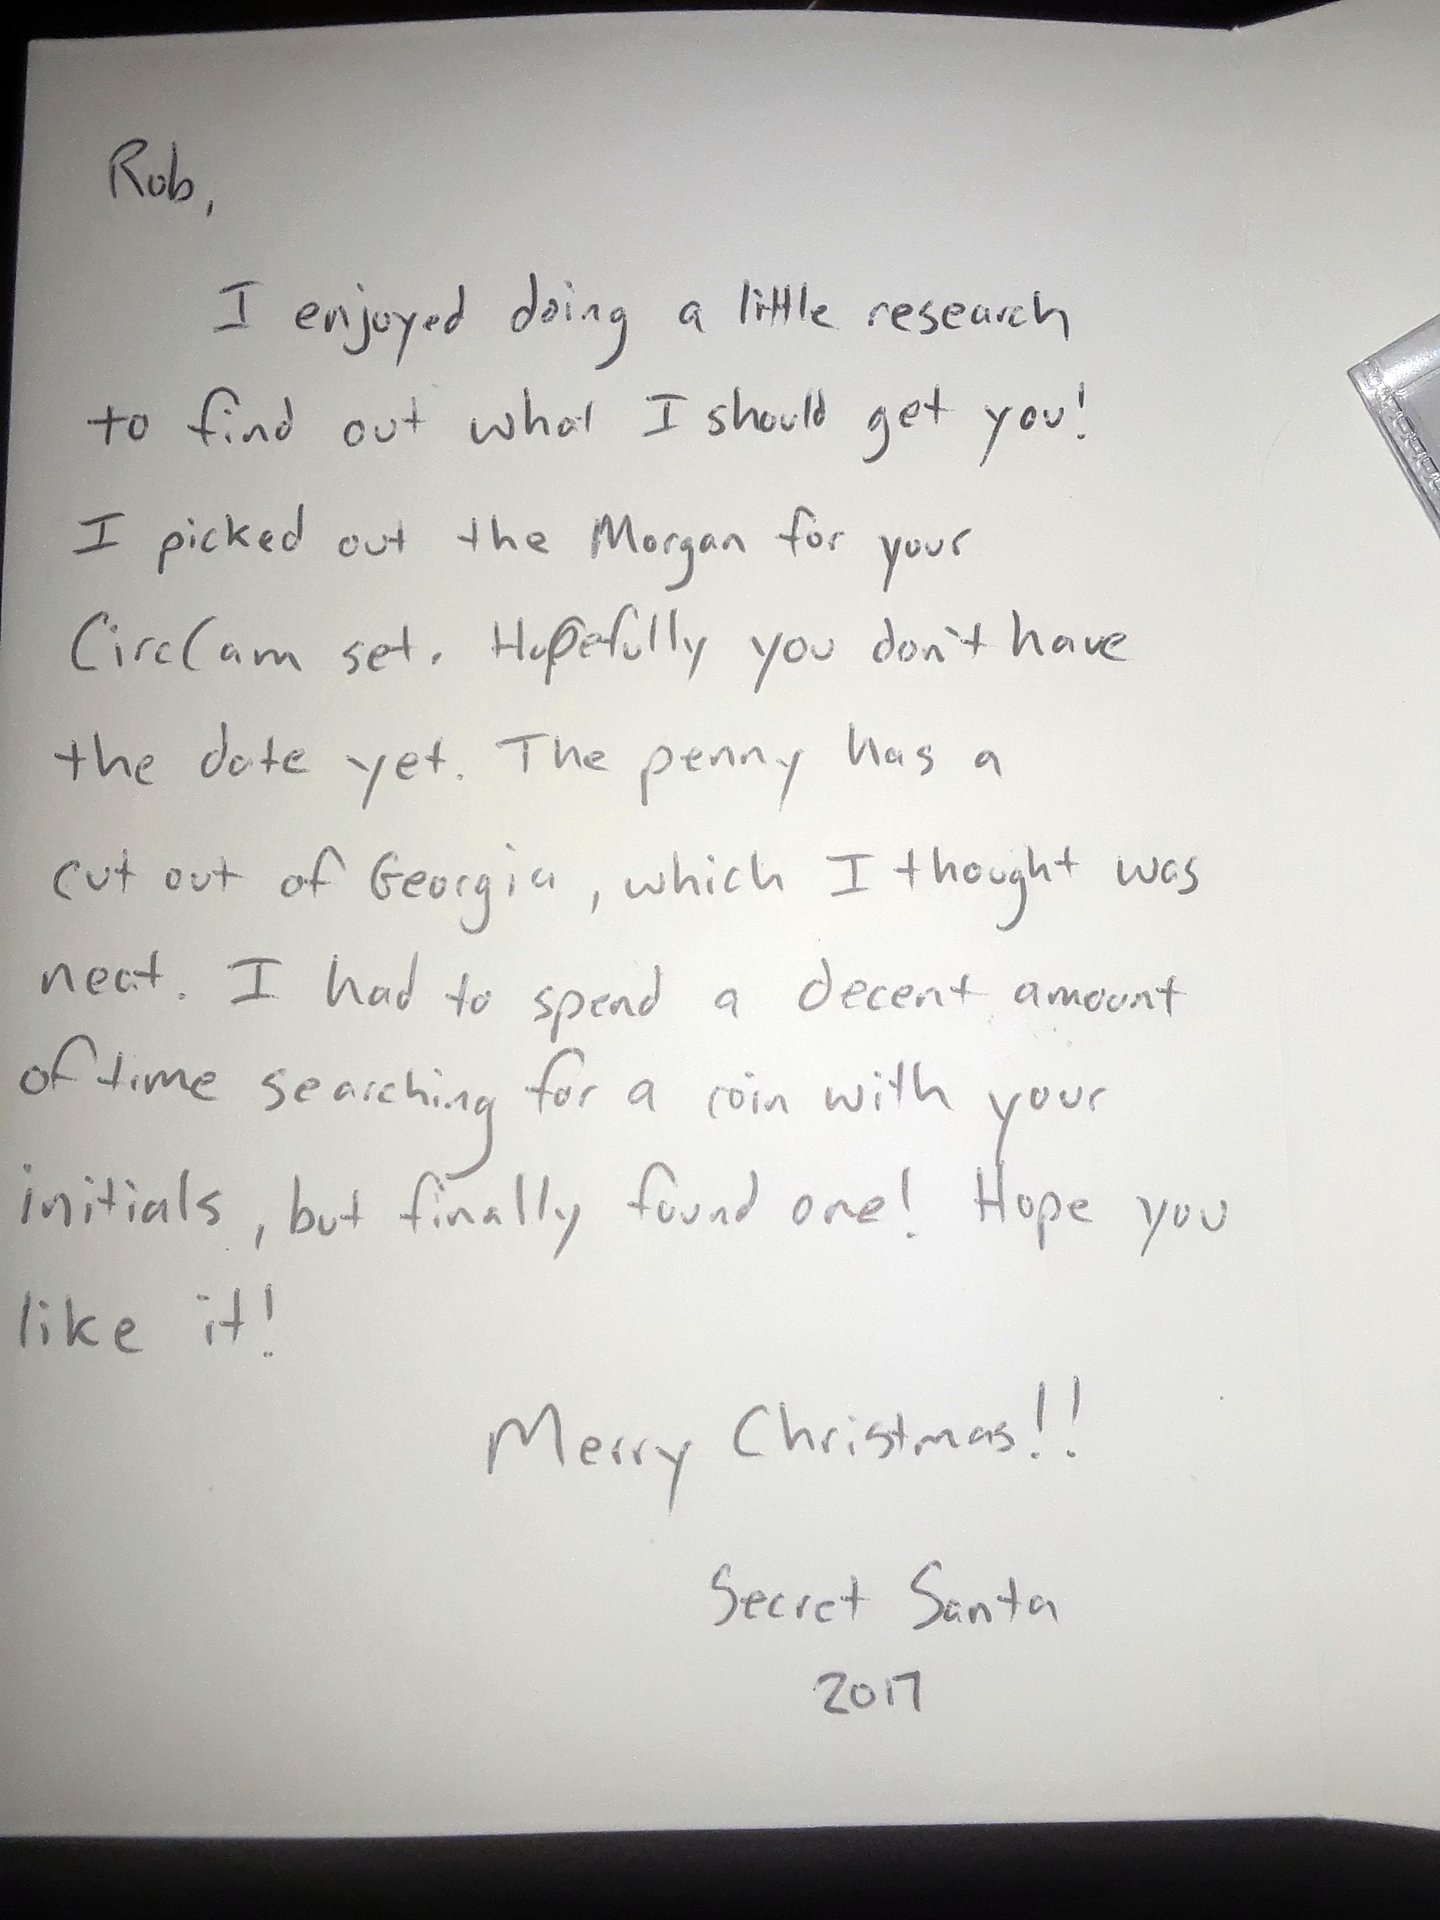 Rob,
I enjoyed doing a little research
to find out what I should get you!
I picked out the Morgan for your
CircCam set. Hopefully you don't have
the date yet. The penny has a
cut out of Georgia, which I thought was
neat. I had to spend a decent amount
of time searching for a coin with your
initials, but finally found one! Hope you
like it!
Merry Christmas!!
Secret Santa
2017